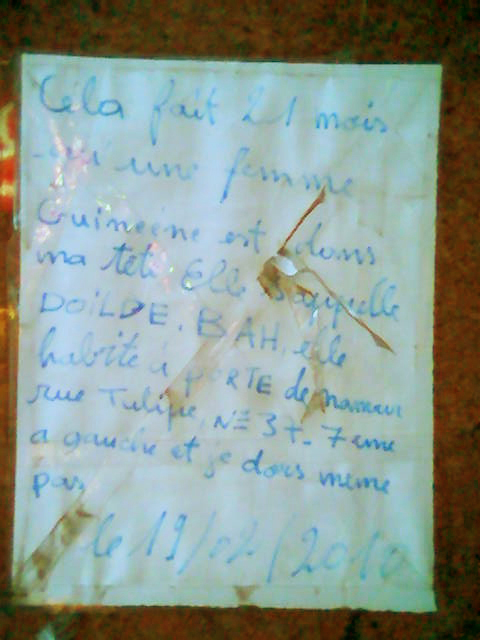 Cela fait 21 mois
qu'une femme
Guineene est dans
ma tete Elle s'appelle
DOILDE. BAH. elle
habite à PORTE de namur
rue Tulipe, N= 37- 7 eme
a gauche et je dors meme
pas
le 19/02/2010